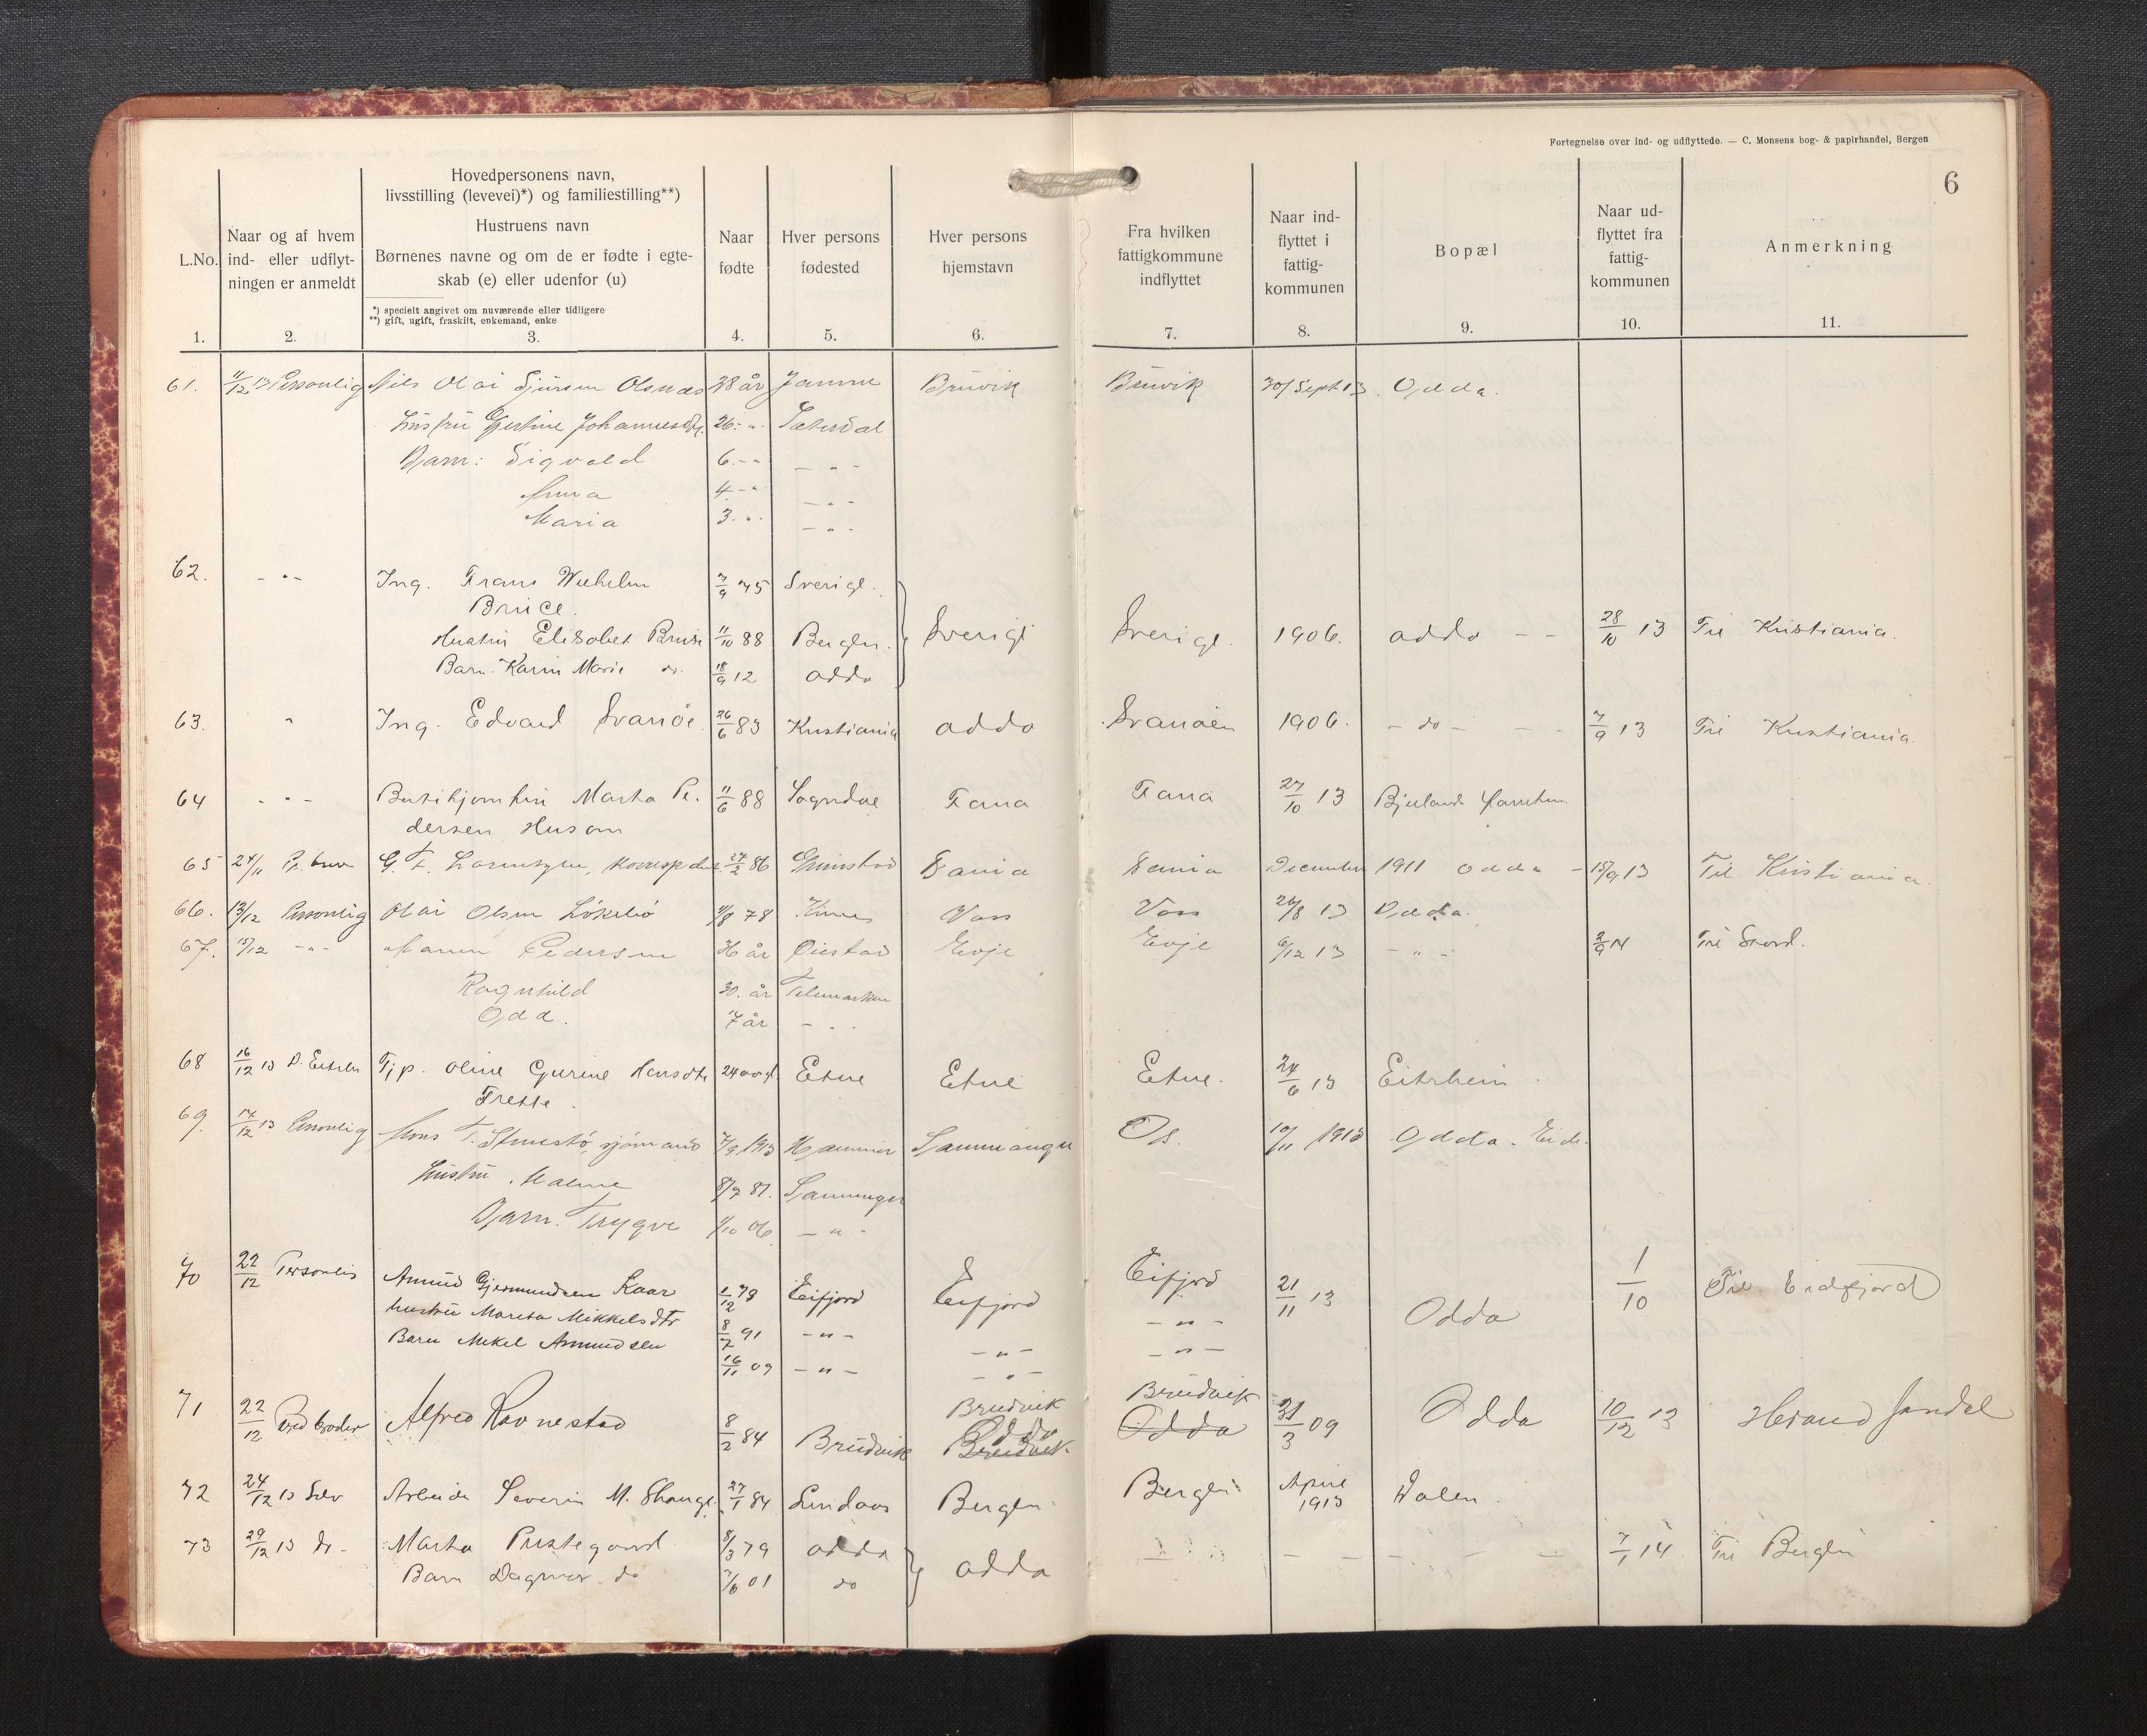 Fortegnelse over ind- og udflyttede. — C. Monsens bog- & papirhandel, Bergen
6
L.No.
Naar og af hvem
ind- eller udflyt-
ningen er anmeldt
Hovedpersonens navn,
livsstilling (levevei)*) og familiestilling**)
Hustruens navn
Børnenes navne og om de er fødte i egte-
skab (e) eller udenfor (u)
*) specielt angivet om nuværende eller tidligere
**) gift, ugift, fraskilt, enkemand, enke
Naar
fødte
Hver persons
fødested
Hver persons
hjemstavn
Fra hvilken
fattigkommune
indflyttet
Naar ind-
flyttet i
fattig-
kommunen
Bopæl
Naar ud-
flyttet fra
fattig-
kommunen
Anmerkning
1. 2. 3. 4. 5. 6. 7. 8. 9. 10. 11.
61. 11/12 13 Personlig Nils Olai Sjursen Olsnæs 38 år Bruvik Bruvik 30/Sept 13 Odda.
Hustru Gjertine Johannesdtr. 26 - " - Sætersdal
Barn: Sigvald 6 - " - " -
Anna 4 - " - " -
Maria 3 - " - " -
62. - " - Ing. Frans Wilhelm 7/9 75 Sverige.
Bruce.
Hustru Elisabet Bruse 11/10 88 Bergen. Sverige Sverige. 1906. Odda - - 28/10 13 Til Kristiania.
Barn. Karin Marie do. 18/9 12 Odda
63. " Ing. Edvard Svanøe 26/6 83 Kristiania Odda Svanøen 1906. - do - 7/9 13 Til Kristiania.
64 - " - Marta Pe- 11/6 88 Sogndal Fana Fana 27/10 13
dersen Husom
65 24/11 Pr. brev G. F. Lorentzen, 24/2 86 Grimstad Fania December 1911 Odda - 15/9 13 Til Kristiania.
66. 13/12 Personlig Olai Olsen 4/8 78 Voss Voss 26/8 13 Odda.
67. 15/12 - " - Pedersen 36 år Øiestad Evje Evje 6/12 13 - " - 2/9 14 Til Stord.
Ragnhild 30. år Telemarken
Odd. 7 år - " -
68 16/12 13 Tjp. Oline Gurine Hansdtr 24 aar Etne Etne Etne. 24/6 13 Eitrheim.
Frette.
69. 17/12 13 Personlig 7/9 1913 Hammer Samnanger Os. 10/11 1913 Odda.
Hustru 8/7 81. Samnanger
Barn. Trygve 1/10 06 - " -
70 22/12 Personlig Amund Gjermundsen Laar 1/12 79 Eifjord Eifjord Eifjord 21/11 13 Odda 1/10 Til Eidfjord
hustru Marita Mikkelsdtr 8/7 91 - " - - " - - " -
Barn Mikel Amundsen 16/11 09 - " - - " - - " -
71 22/12 Ved broder Alfred Ravnestad 8/2 84 Brudvik Brudvik Brudvik 31/3 09 Odda 10/12 13 Herand Jondal
Odda
Brudvik
Odda
72 24/12 13 Selv Arbeider Severin M. 27/1 84 Lindaas Bergen. Bergen April
1913 Dalen.
73 29/12 13 do - Marta Prestegaard 8/3 79 Odda Odda - - - - - - 7/1 14 Til Bergen
Barn Dagmar do 7/6 01 do